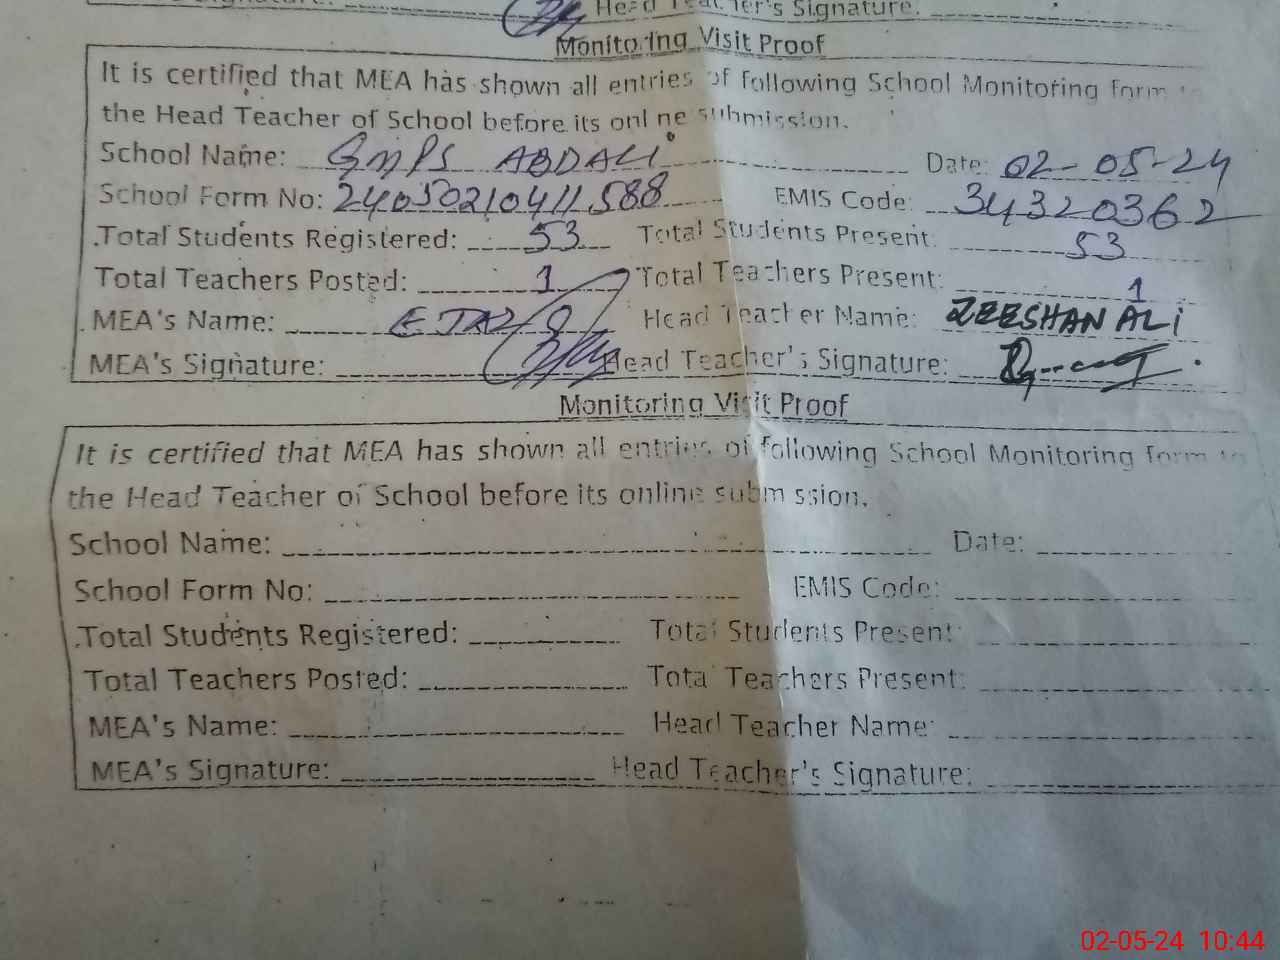 Head Teacher's Signature:
Monitoring Visit Proof
It is certified that MEA has shown all entries of following School Monitoring form to
the Head Teacher of School before its online submission.
School Name: GMPS ABDALI Date: 02-05-24
School Form No: 24050210411588 EMIS Code: 34320362
Total Students Registered: 53 Total Students Present: 53
Total Teachers Posted: 1 Total Teachers Present: 1
MEA's Name: Head Teacher Name: ZEESHAN ALI
MEA's Signature: Head Teacher's Signature:
Monitoring Visit Proof
It is certified that MEA has shown all entries of following School Monitoring form to
the Head Teacher of School before its online submission.
School Name: Date:
School Form No: EMIS Code:
Total Students Registered: Total Students Present:
Total Teachers Posted: Total Teachers Present:
MEA's Name: Head Teacher Name:
MEA's Signature: Head Teacher's Signature:
02-05-24 10:44